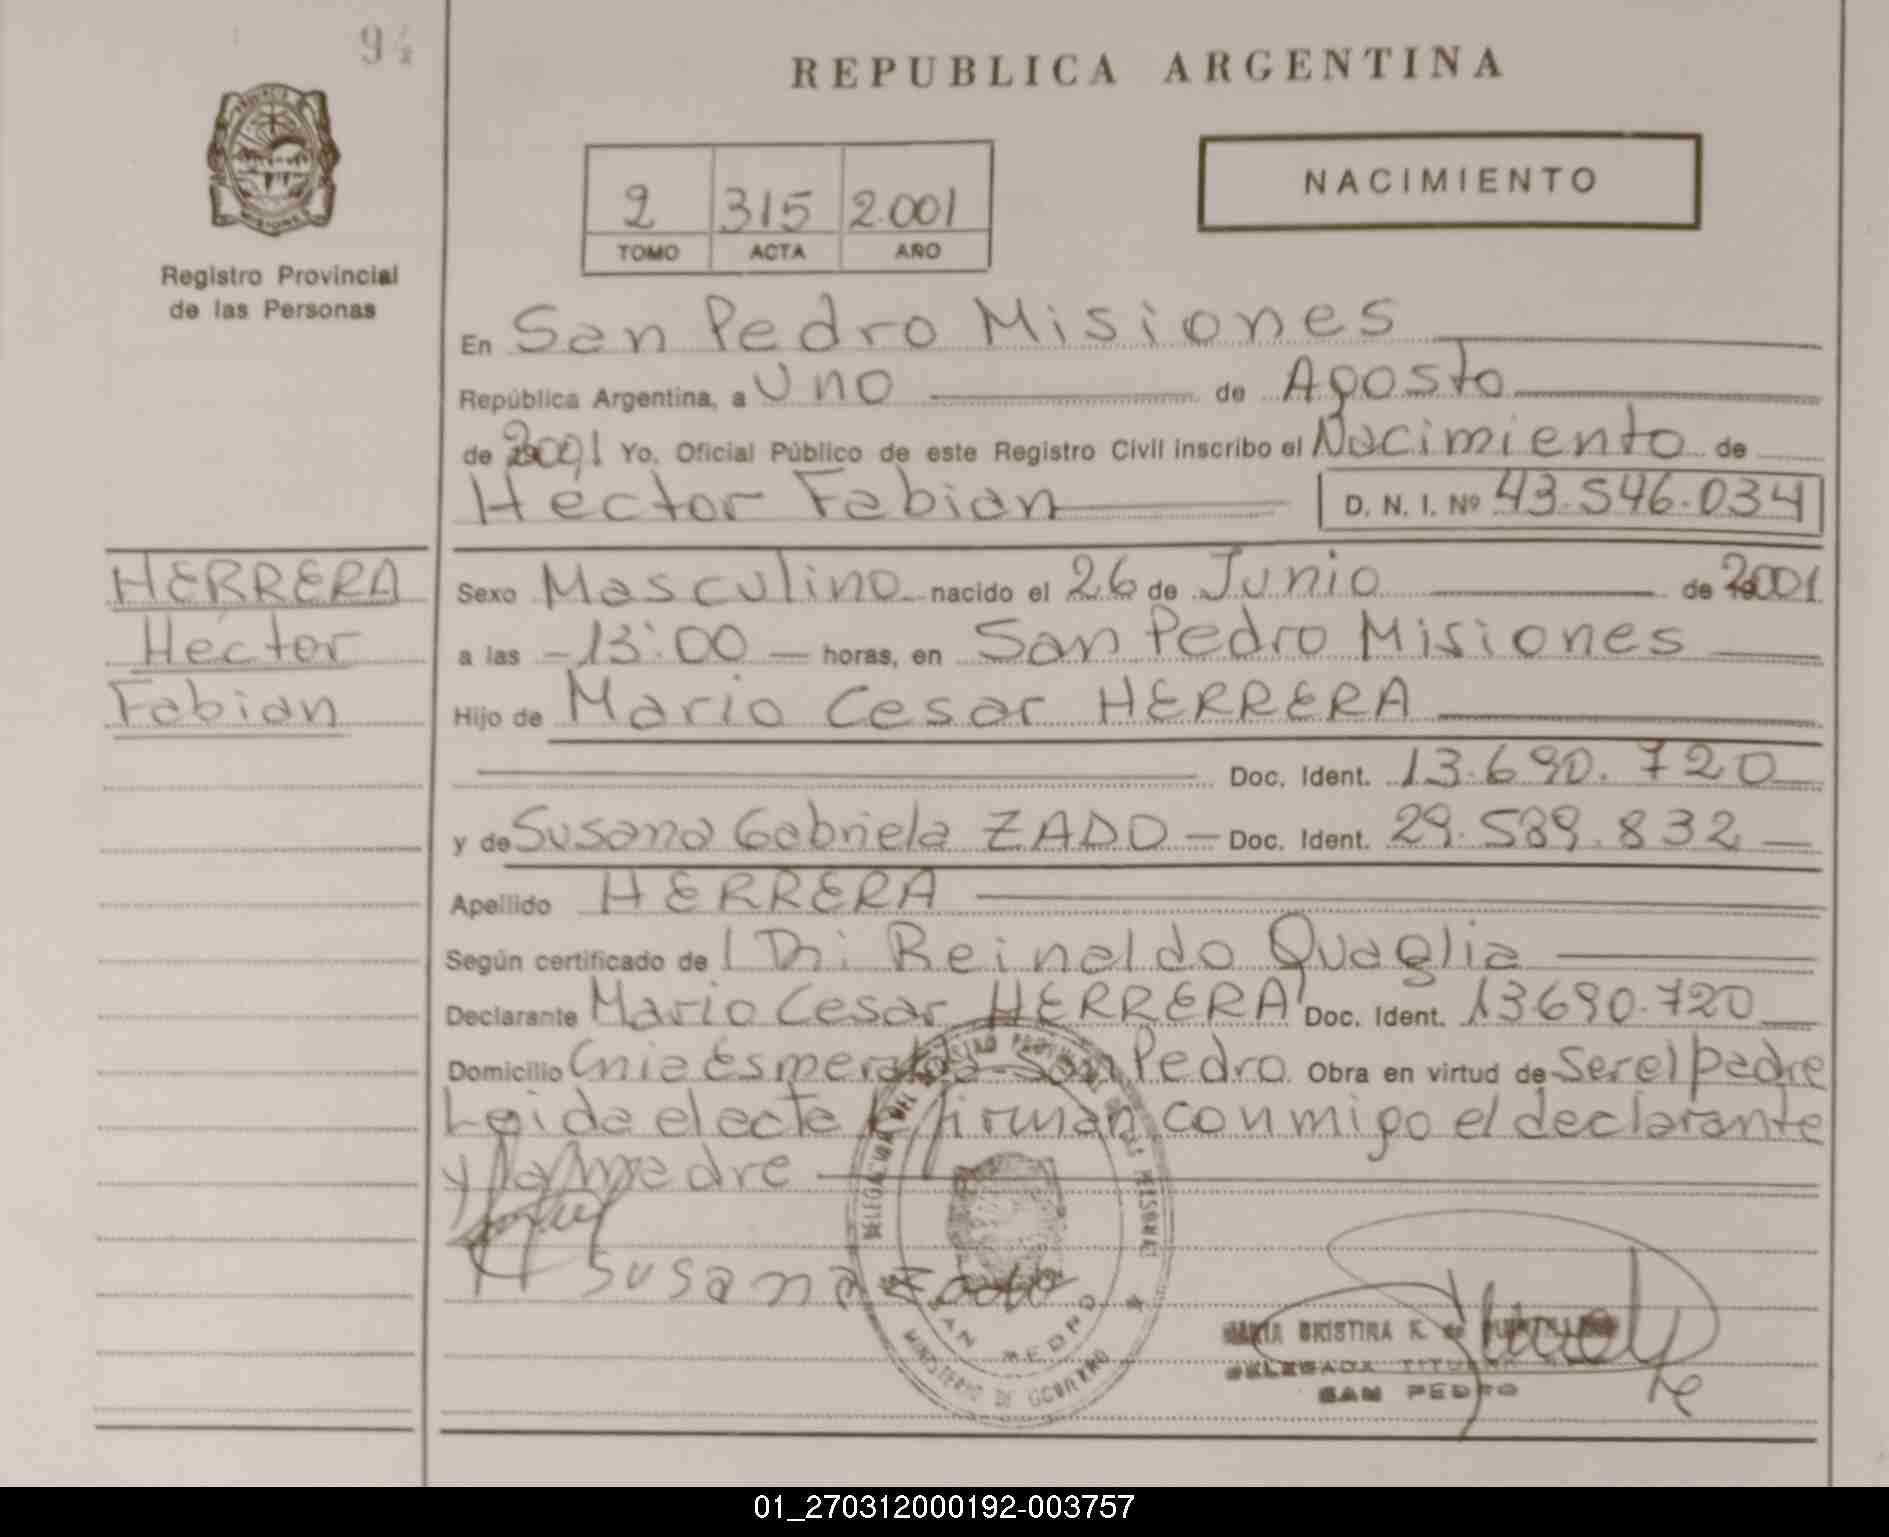 REPUBLICA ARGENTINA
NACIMIENTO
2 315 2.001
TOMO ACTA AÑO
Registro Provincial
de las Personas
En San Pedro Misiones
República Argentina, a Uno de Agosto
de 2001 Yo, Oficial Público de este Registro Civil inscribo el Nacimiento de
Héctor Fabian D. N. I. Nº 43.546.034
HERRERA
Héctor
Fabian
Sexo Masculino nacido el 26 de Junio de 2001
a las 13:00 horas, en San Pedro Misiones
Hijo de Mario Cesar HERRERA
Doc. Ident. 13.690.720
y de Susana Gabriela ZADO Doc. Ident. 29.589.832
Apellido HERRERA
Según certificado de Reinaldo Quaglia
Declarante Mario Cesar HERRERA Doc. Ident. 13690.720
Domicilio Cnia Esmeralda San Pedro Obra en virtud de Ser el padre
Leida el acta firman conmigo el declarante
y la madre
Susana Zado
DELEGACION DEL REGISTRO PROVINCIAL
SAN PEDRO
MINISTERIO DE GOBIERNO
CRISTINA K. de
DELEGADA TITULAR
SAN PEDRO
01_270312000192-003757